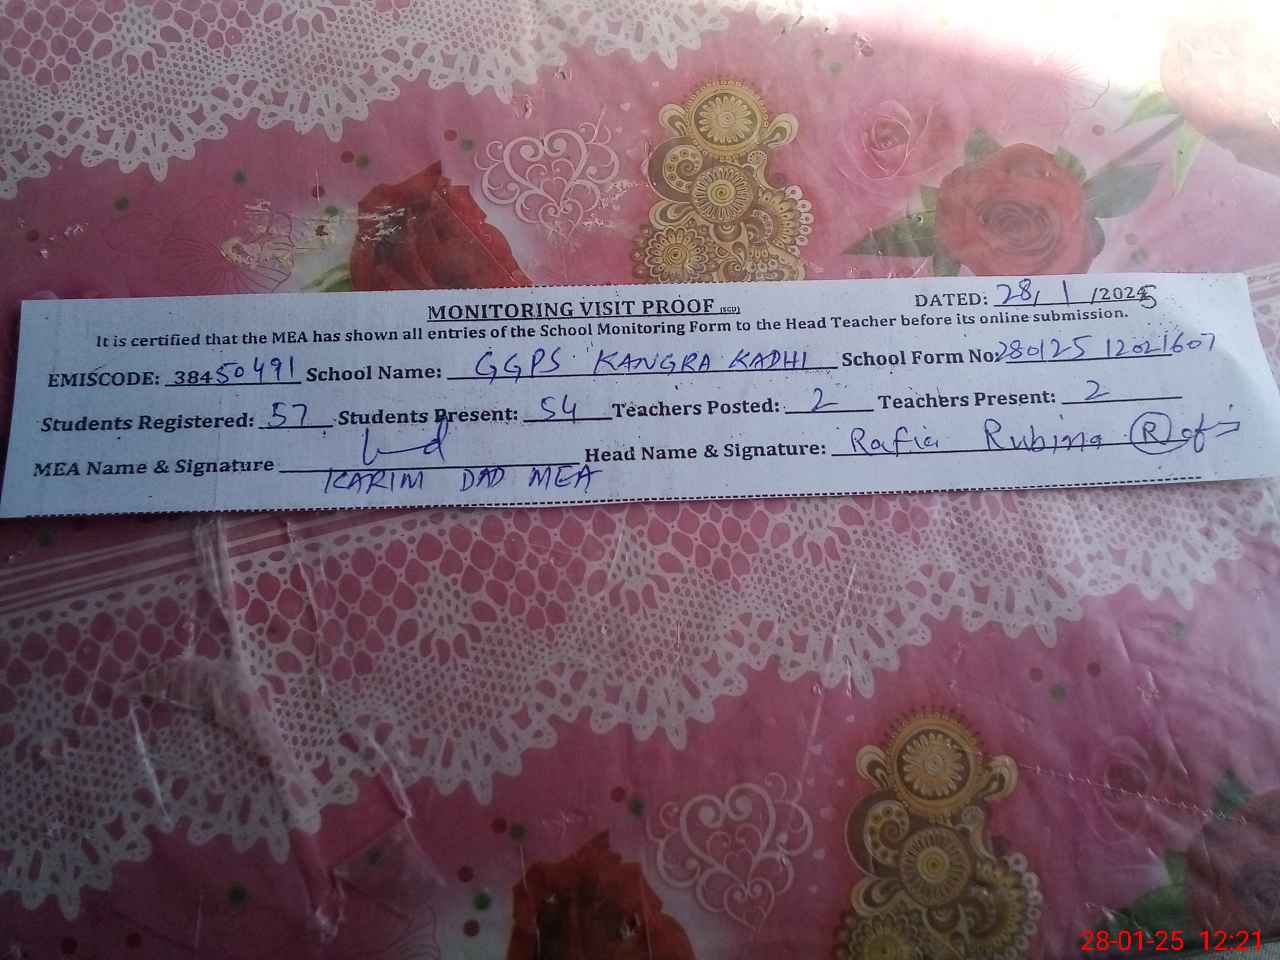 MONITORING VISIT PROOF (SGD) DATED: 28/1/2025
It is certified that the MEA has shown all entries of the School Monitoring Form to the Head Teacher before its online submission.
EMISCODE: 38450491 School Name: GGPS KANGRA KADHI School Form No: 280125 12021607
Students Registered: 57 Students Present: 54 Teachers Posted: 2 Teachers Present: 2
MEA Name & Signature Head Name & Signature: Rafia Rubina R
KARIM DAD MEA
28-01-25 12:21